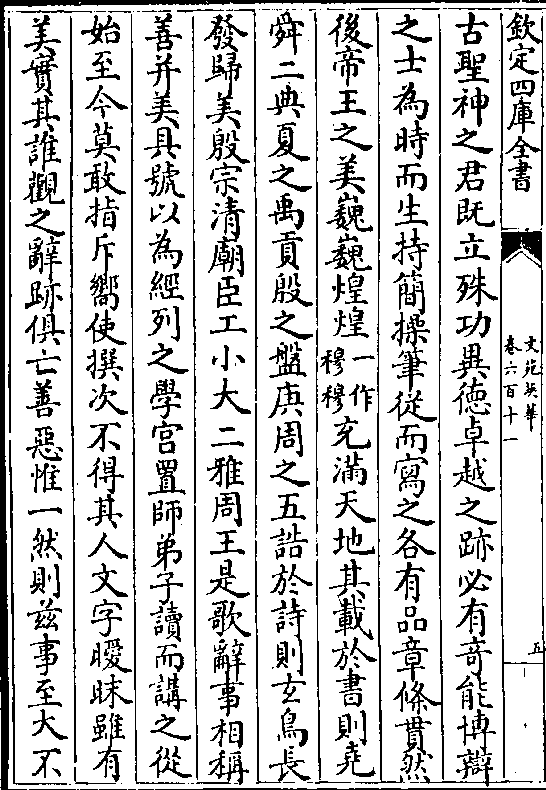 欽定四庫全書
文苑英華
卷六百十一
五
古聖神之君既立殊功異徳卓越之跡必有竒能博辯
之士為時而生持簡操筆從而寫之各有品章條貫然
後帝王之美巍巍煌煌一作穆穆充滿天地其載於書則堯
舜二典夏之禹貢殷之盤庚周之五誥於詩則玄鳥長
發歸美殷宗清廟臣工小大二雅周王是歌辭事相稱
善并美具號以為經列之學宫置師弟子讀而講之從
始至今莫敢指斥嚮使撰次不得其人文字曖昧雖有
美實其誰觀之辭跡俱亡善惡惟一然則兹事至大不